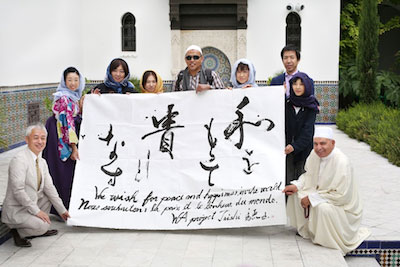 和を
もって
貴
なす
We wish for peace and happiness world
Nous souhaitons la paix et le bonheur du monde.
WA project